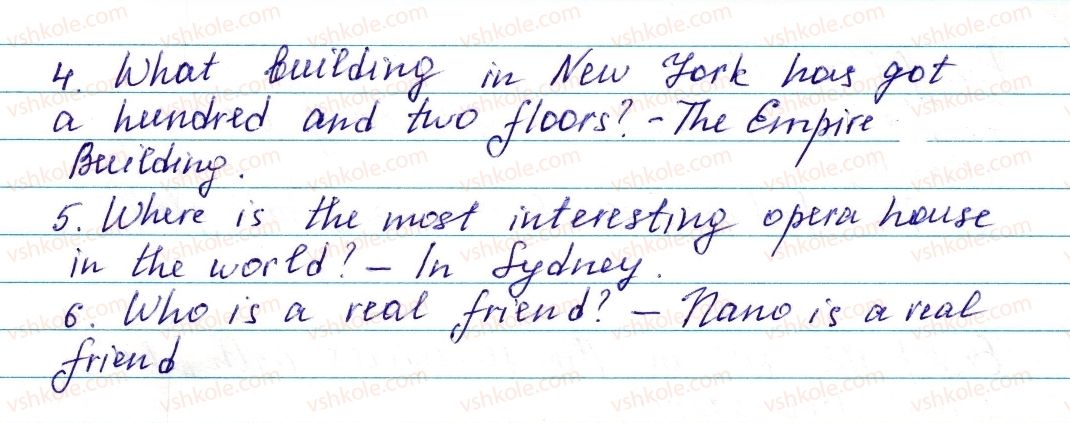 4. What building in New York has got
a hundred and two floors? - The Empire
Building.
5. Where is the most interesting opera house
in the world? - In Sydney.
6. Who is a real friend? - Nano is a real
friend